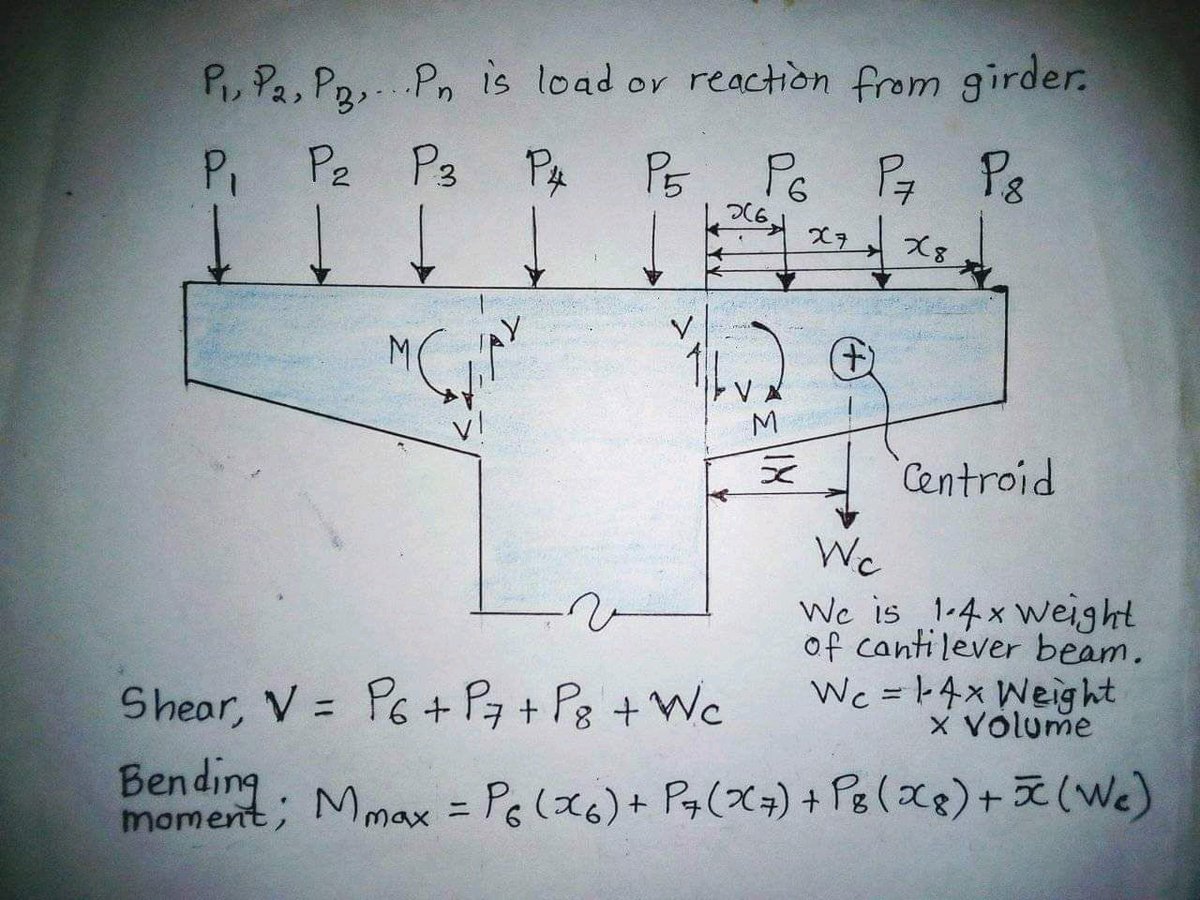 P₁, P₂, P₃,...Pₙ is load or reaction from girder.
P₁ P₂ P₃ P₄ P₅ P₆ P₇ P₈
x₆
x₇ x₈
M V V
V V M
Centroid
x̄
Wc
Wc is 1.4 x weight
of cantilever beam.
Wc = 1.4 x Weight
x Volume
Shear, V = P₆ + P₇ + P₈ + Wc
Bending
moment; Mmax = P₆(x₆) + P₇(x₇) + P₈(x₈) + x̄(Wc)